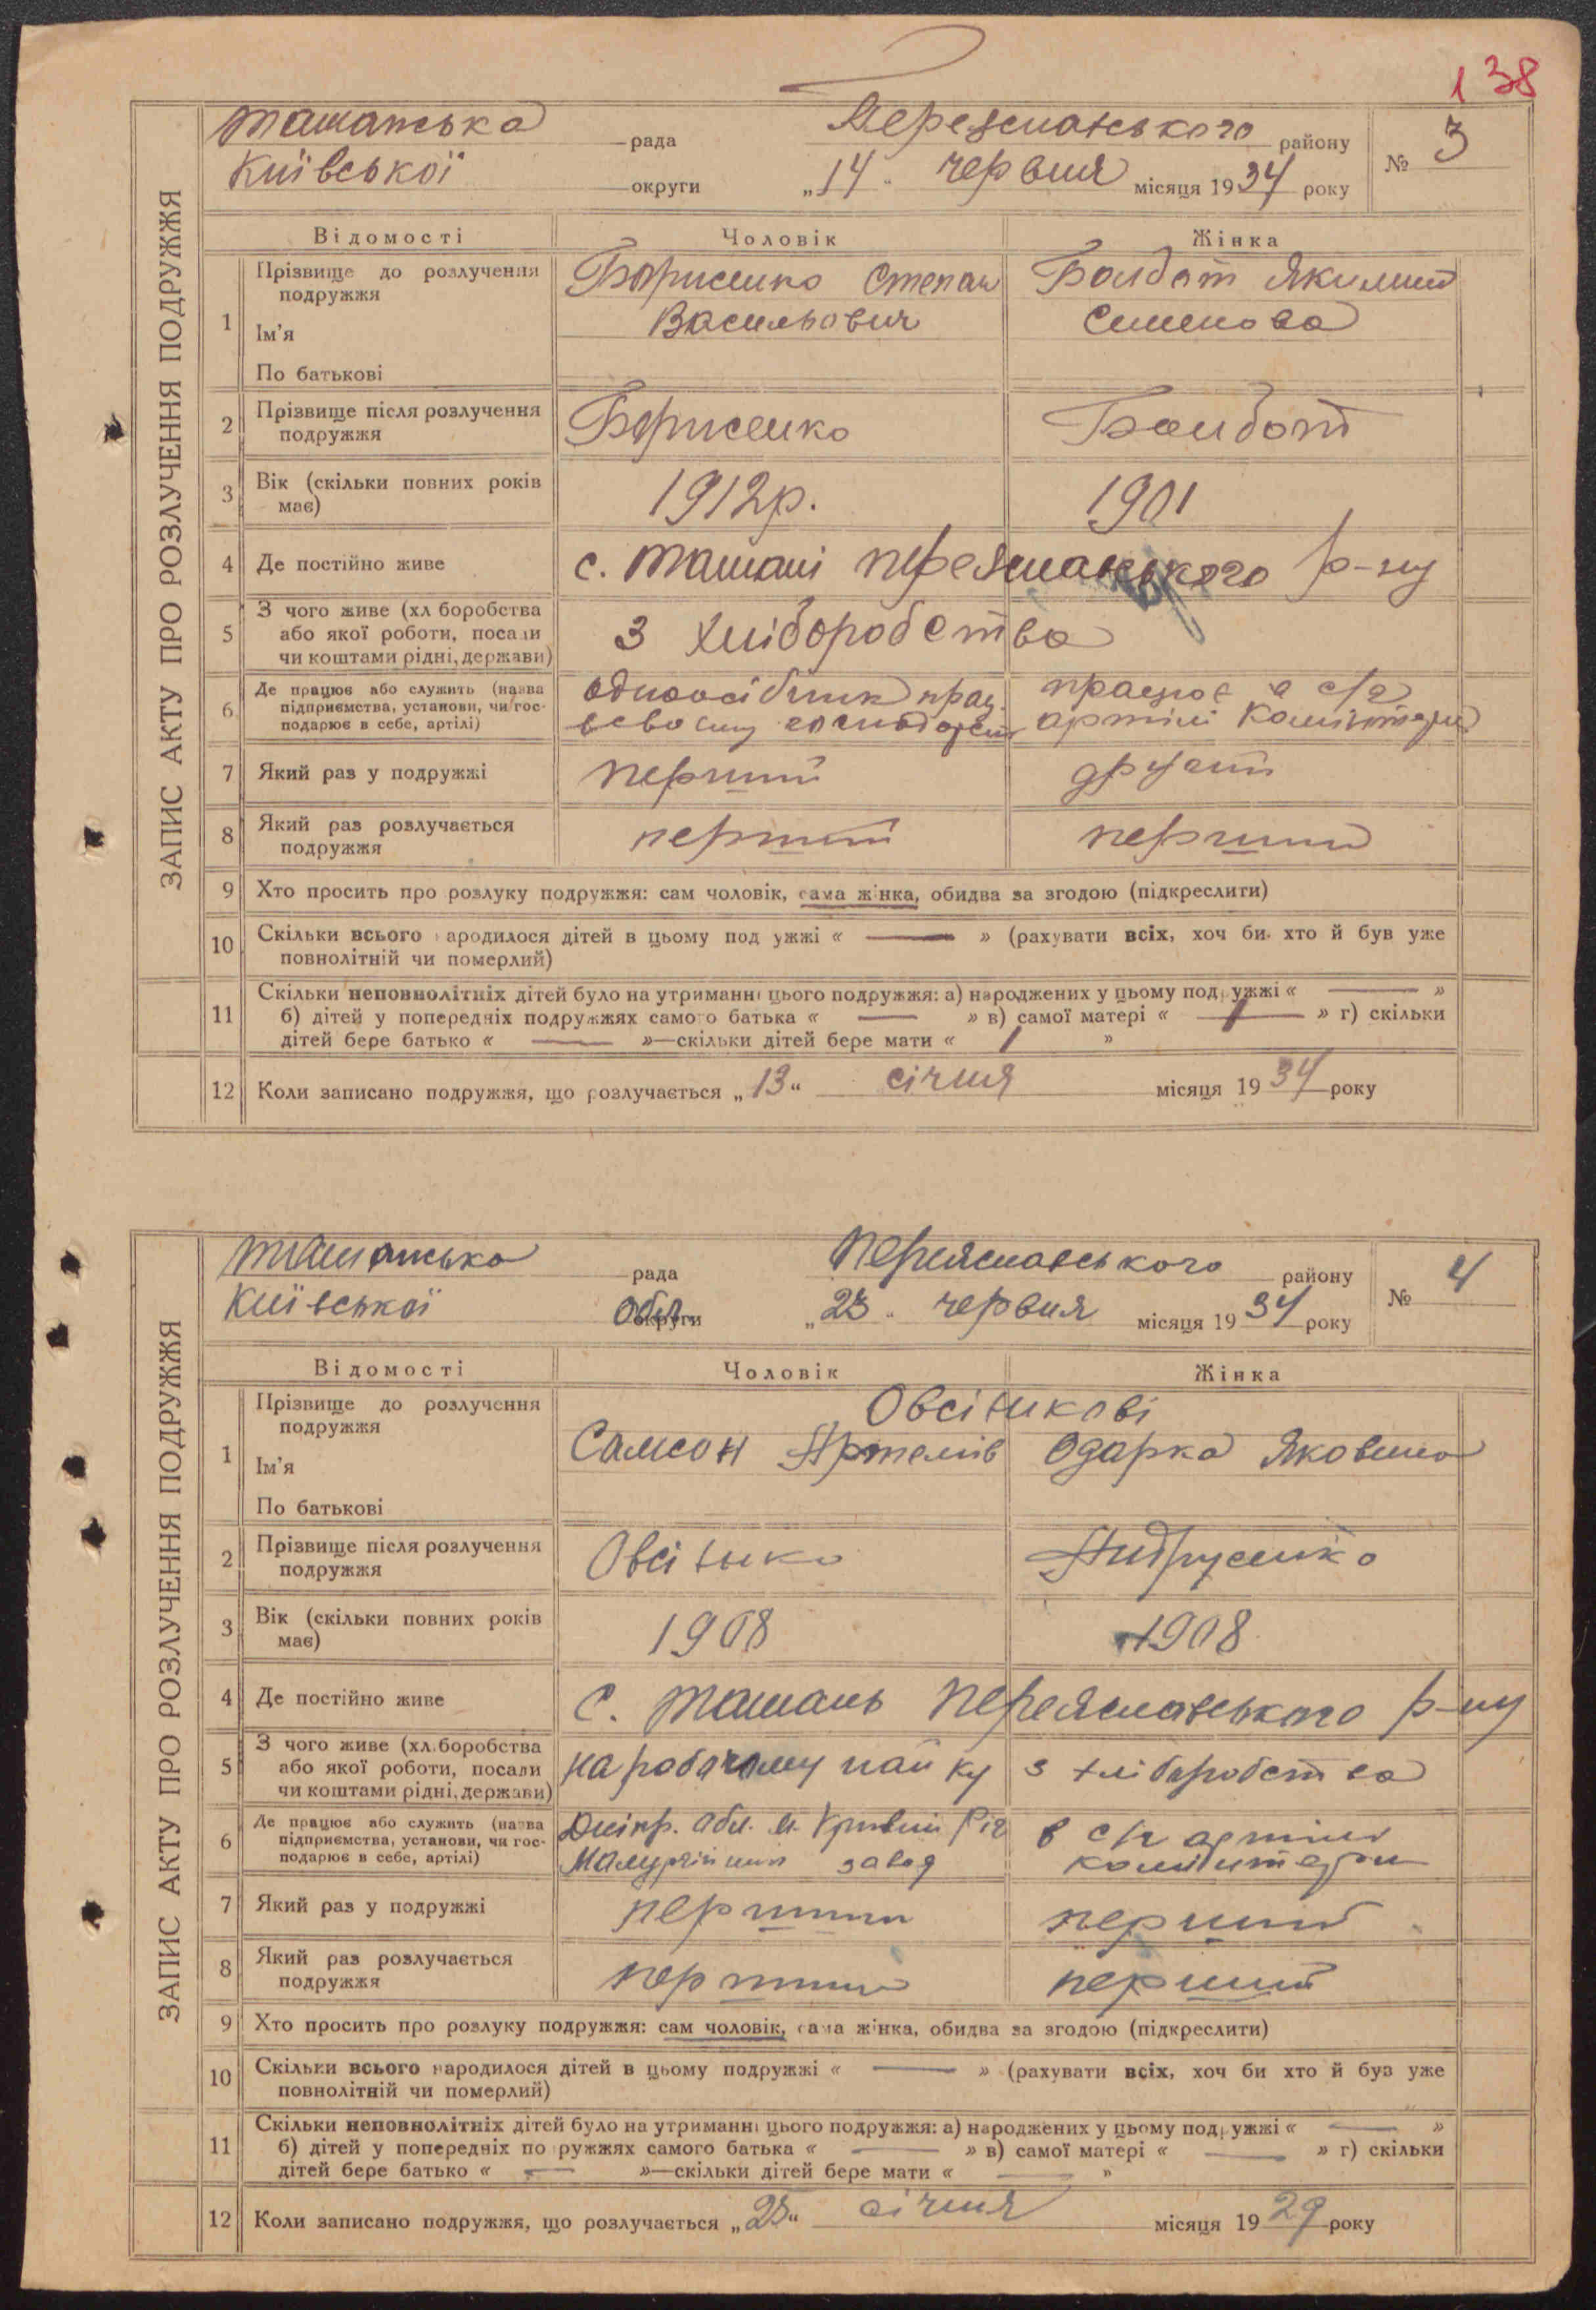 138
ЗАПИС АКТУ ПРО РОЗЛУЧЕННЯ ПОДРУЖЖЯ
Ташанська рада Переяславського району № 3
Київської округи „14" червня місяця 1934 року
Відомості Чоловік Жінка
1 Прізвище до розлучення подружжя Борисенко Степан Болбот Якилина
Ім'я Васильович Семенова
По батькові
2 Прізвище після розлучення подружжя Борисенко Болбот
3 Вік (скільки повних років має) 1912р. 1901
4 Де постійно живе с. Ташані Переяславського р-ну
5 З чого живе (хл боробства або якої роботи, посади чи коштами рідні, держави) З хліборобства
6 Де працює або служить (назва підприємства, установи, чи господарює в себе, артілі) одноосібник прац. працює в с/г
в свому господарст артілі Комінтерн
7 Який раз у подружжі перший другий
8 Який раз розлучається подружжя перший перший
9 Хто просить про розлуку подружжя: сам чоловік, сама жінка, обидва за згодою (підкреслити)
10 Скільки всього народилося дітей в цьому подружжі « — » (рахувати всіх, хоч би хто й був уже
повнолітній чи померлий)
11 Скільки неповнолітніх дітей було на утриманні цього подружжя: а) народжених у цьому подружжі « — »
б) дітей у попередніх подружжях самого батька « — » в) самої матері « 1 » г) скільки
дітей бере батько « — »—скільки дітей бере мати « 1 »
12 Коли записано подружжя, що розлучається „13" січня місяця 1934 року
ЗАПИС АКТУ ПРО РОЗЛУЧЕННЯ ПОДРУЖЖЯ
Ташанська рада Переяславського району № 4
Київської округи обл. „23" червня місяця 1934 року
Відомості Чоловік Жінка
1 Прізвище до розлучення подружжя Овсієнкові
Ім'я Самсон Артемів Одарка Яковина
По батькові
2 Прізвище після розлучення подружжя Овсієнко Андрусенко
3 Вік (скільки повних років має) 1908 1908
4 Де постійно живе с. Ташань Переяславського р-ну
5 З чого живе (хл.боробства або якої роботи, посади чи коштами рідні, держави) на робочому пайку з хліборобства
6 Де працює або служить (назва підприємства, установи, чи господарює в себе, артілі) Дніпр. обл. м. Кривий Ріг в с/г артілі
завод комінтерн
7 Який раз у подружжі перший перший
8 Який раз розлучається подружжя перший перший
9 Хто просить про розлуку подружжя: сам чоловік, сама жінка, обидва за згодою (підкреслити)
10 Скільки всього народилося дітей в цьому подружжі « — » (рахувати всіх, хоч би хто й був уже
повнолітній чи померлий)
11 Скільки неповнолітніх дітей було на утриманні цього подружжя: а) народжених у цьому подружжі « — »
б) дітей у попередніх подружжях самого батька « — » в) самої матері « — » г) скільки
дітей бере батько « — »—скільки дітей бере мати « — »
12 Коли записано подружжя, що розлучається „23" січня місяця 1929 року